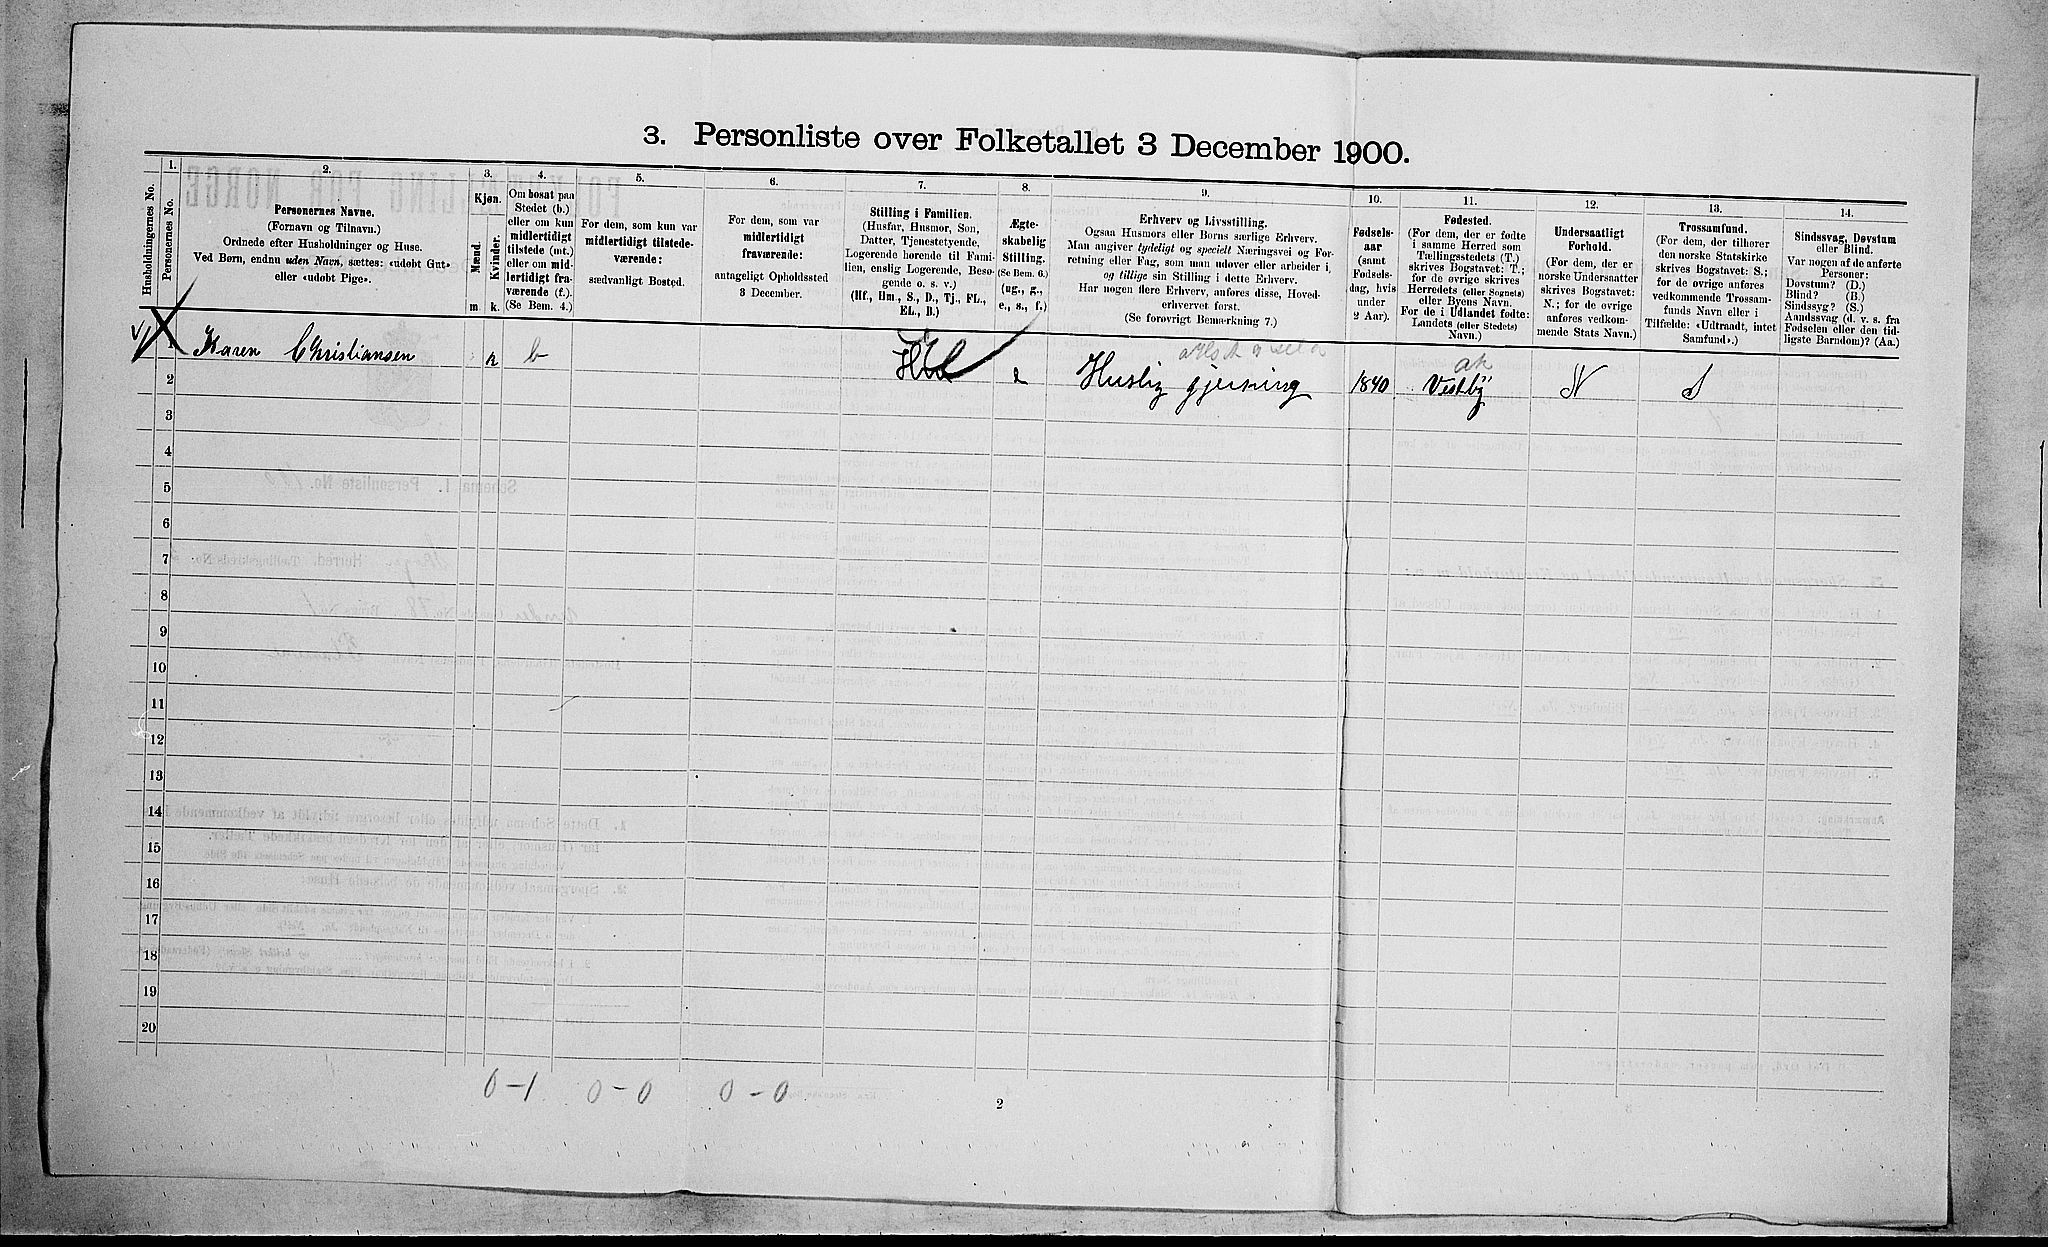 3. Personliste over Folketallet 3 December 1900.
Husholdningernes No.
1.
Personernes No.
2.
Personernes Navne.
(Fornavn og Tilnavn.)
Ordnede efter Husholdninger og Huse.
Ved Børn, endnu uden Navn, sættes: «udøbt Gut»
eller «udøbt Pige».
3.
Kjøn.
Mænd.
Kvinder.
m.
k.
4.
Om bosat paa
Stedet (b.)
eller om kun
midlertidigt
tilstede (mt.)
eller om mid-
lertidigt fra-
værende (f.).
(Se Bem. 4.)
5.
For dem, som kun var
midlertidigt tilstede-
værende:
sædvanligt Bosted.
6.
For dem, som var
midlertidigt
fraværende:
antageligt Opholdssted
3 December.
7.
Stilling i Familien.
(Husfar, Husmor, Søn,
Datter, Tjenestetyende,
Logerende hørende til Fami-
lien, enslig Logerende, Besø-
gende o. s. v.)
(Hf., Hm., S., D., Tj., FL.,
EL., B.)
8.
Ægte-
skabelig
Stilling.
(Se Bem. 6.)
(ug., g.,
e., s., f.)
9.
Erhverv og Livsstilling.
Ogsaa Husmors eller Børns særlige Erhverv.
Man angiver tydeligt og specielt Næringsvei og For-
retning eller Fag, som man udøver eller arbeider i,
og tillige sin Stilling i dette Erhverv.
Har nogen flere Erhverv, anføres disse, Hoved-
erhvervet først.
(Se forøvrigt Bemærkning 7.)
10.
Fødsels-
aar
(samt
Fødsels-
dag, hvis
under
2 Aar).
11.
Fødested.
(For dem, der er fødte
i samme Herred som
Tællingsstedets (T.)
skrives Bogstavet: T.;
for de øvrige skrives
Herredets (eller Sognets)
eller Byens Navn.
For de i Udlandet fødte:
Landets (eller Stedets)
Navn.)
12.
Undersaatligt
Forhold.
(For dem, der er
norske Undersaatter
skrives Bogstavet:
N.; for de øvrige
anføres vedkom-
mende Stats Navn.)
13.
Trossamfund.
(For dem, der tilhører
den norske Statskirke
skrives Bogstavet: S.;
for de øvrige anføres
vedkommende Trossam-
funds Navn eller i
Tilfælde: «Udtraadt, intet
Samfund».)
14.
Sindssvag, Døvstum
eller Blind.
Var nogen af de anførte
Personer:
Døvstum? (D.)
Blind? (B.)
Sindssyg? (S.)
Aandssvag (d. v. s. fra
Fødselen eller den tid-
ligste Barndom)? (Aa.)
1 Karen Christiansen k b Huslig gjerning 1840 Vestby N S
ak
2
3
4
5
6
7
8
9
10
11
12
13
14
15
16
17
18
19
20
0-1 0-0 0-0
2